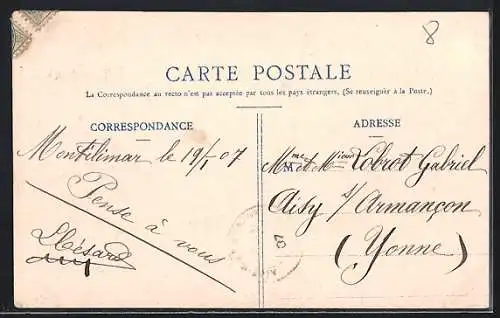 8
CARTE POSTALE
La Correspondance au recto n'est pas acceptée par tous les pays étrangers. (Se renseigner à la Poste.)
CORRESPONDANCE
Montélimar le 19/1 07
Pense à vous
ADRESSE
M
Mme et Lobrot Gabriel
Aisy s/ Armançon
(Yonne)
07